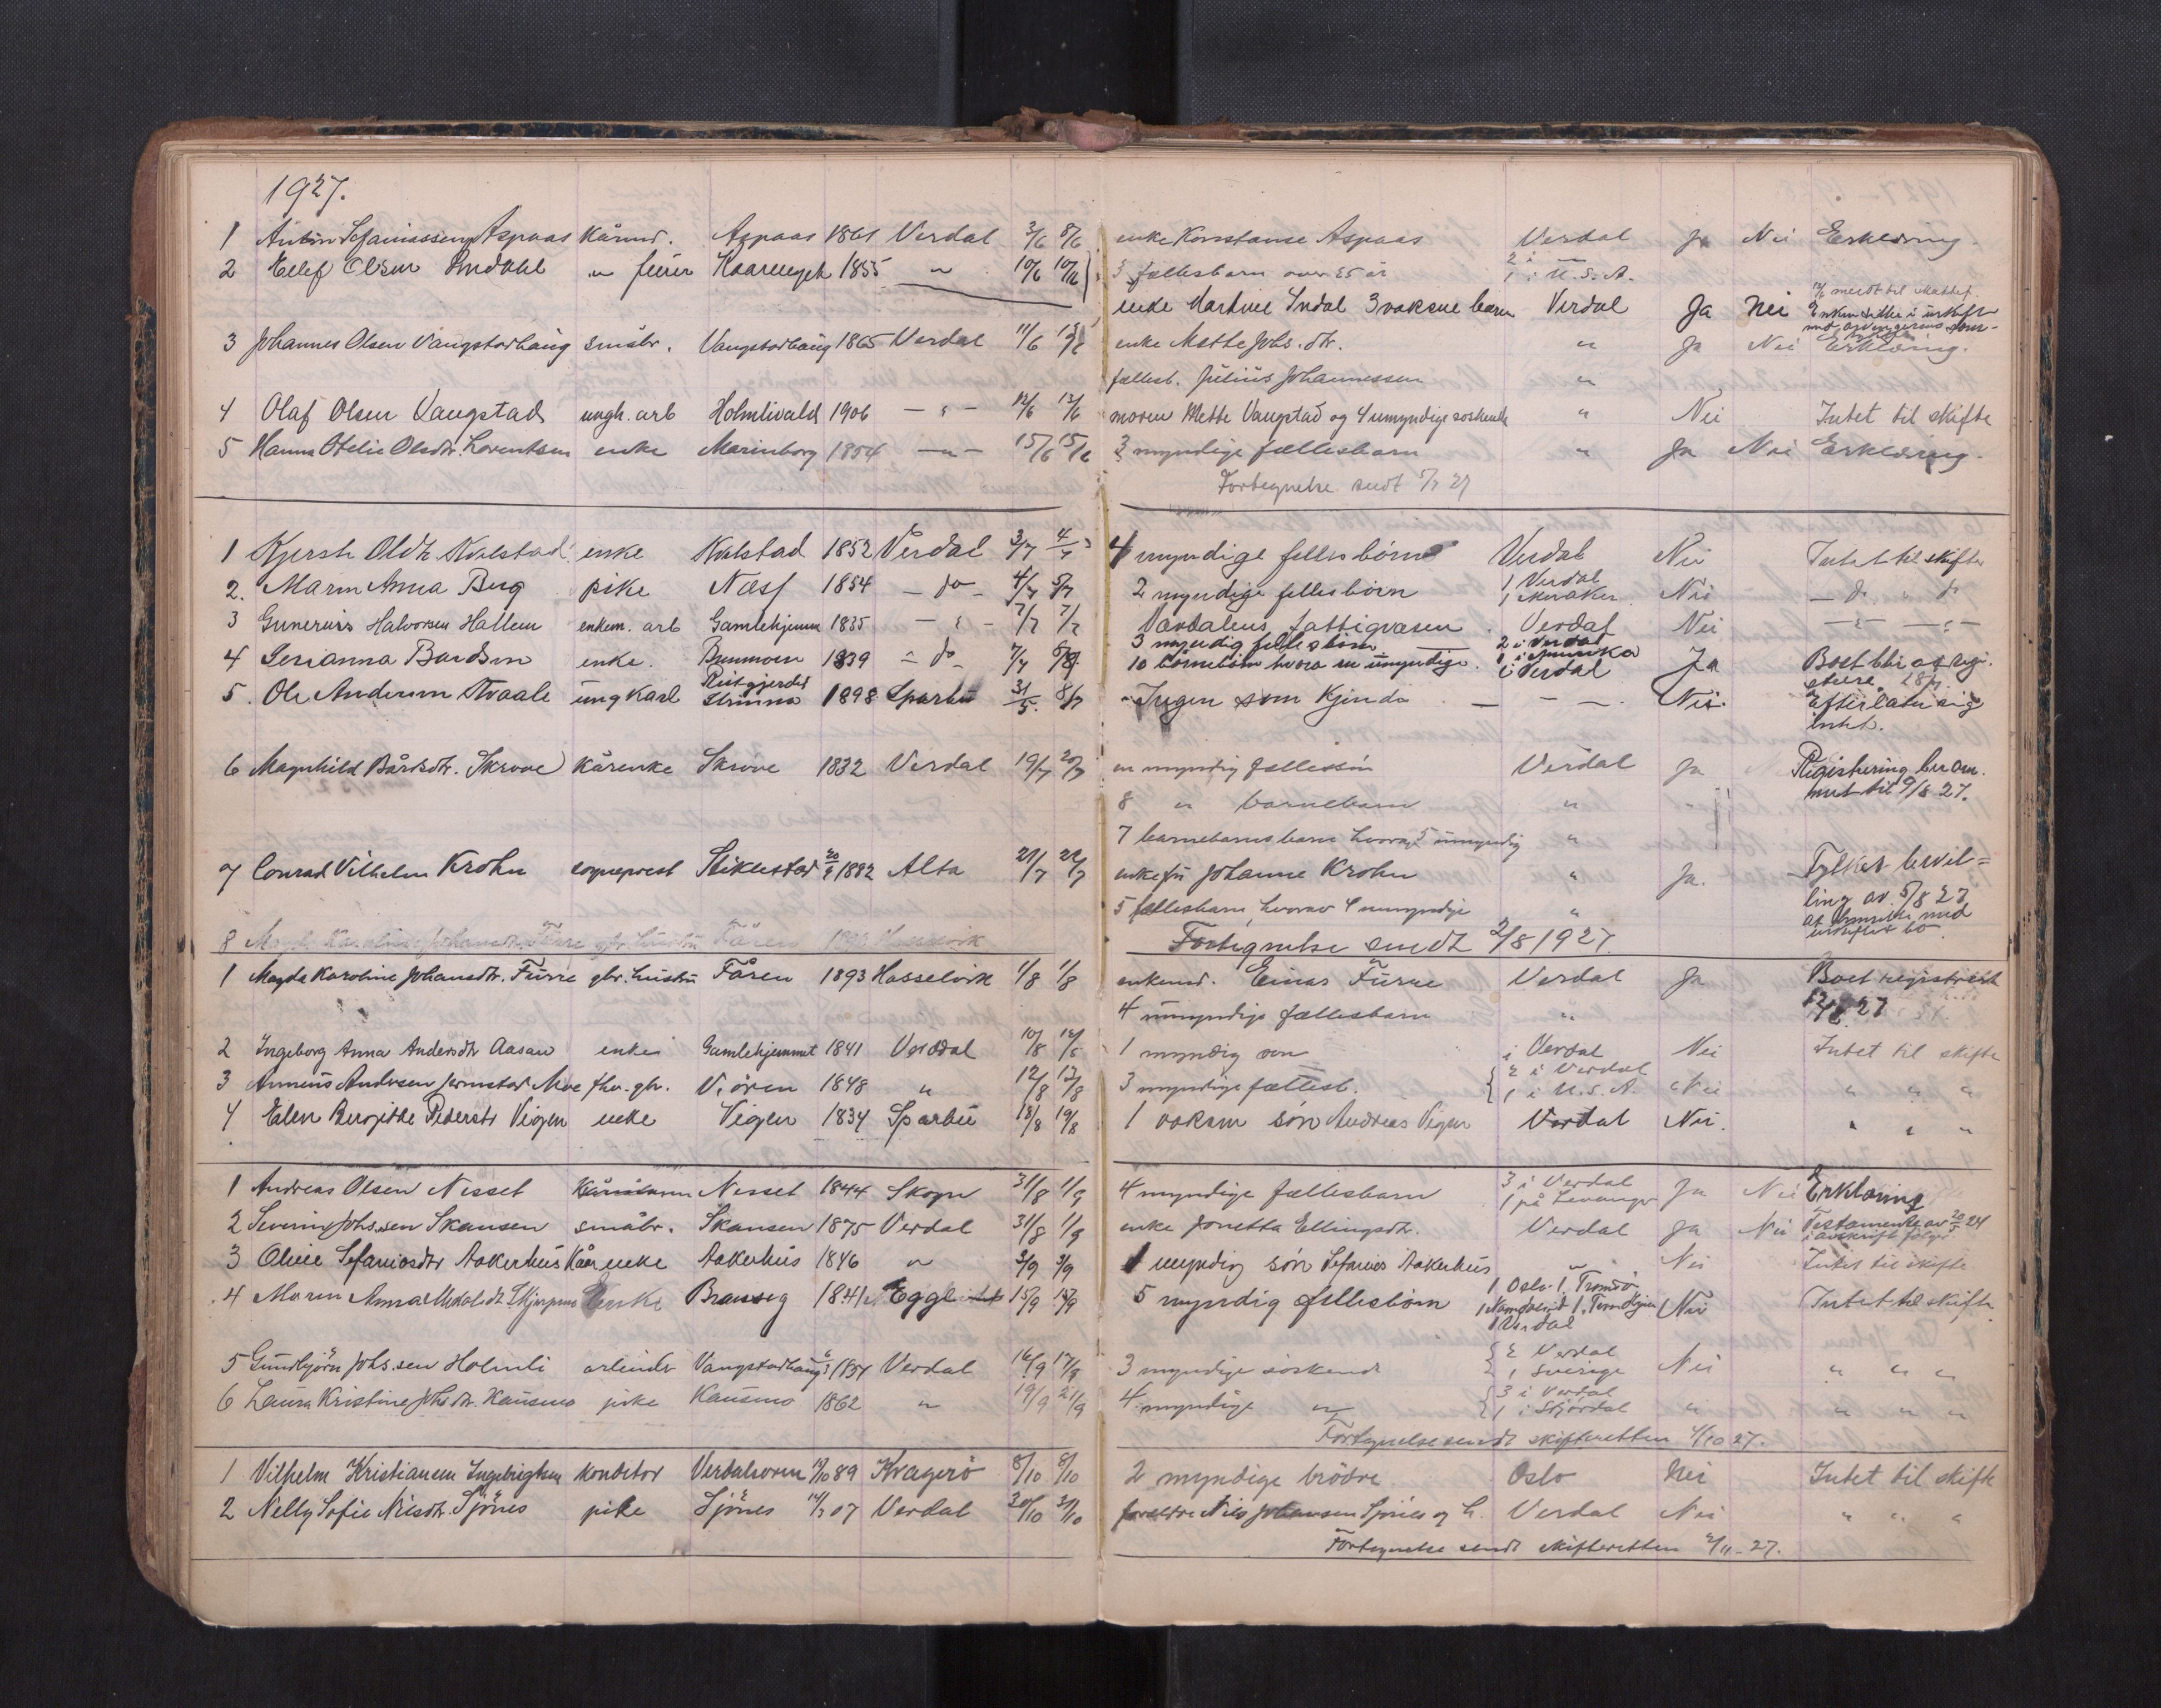 1927.
1 Anton Sefaniassen Aspaas kårmd. Aspaas 1861 Verdal 3/6 8/6 enke Konstanse Aspaas Verdal Ja Nei Erklæring.
2 Ellef Olsen Indahl " 1855 " 10/6 10/6 3 fellesbarn over 25 år 2 i " 1 i U.S.A.
enke Martine Indal 3 voksne barn Verdal Ja Nei
3 Johannes Olsen Vangstadhaug småbr. Vangstadhaug 1865 Verdal 11/6 enke Mette Johs.dtr. " Ja Nei Erklæring.
fællesb. Julius Johannessen "
4 Olaf Olsen Vangstad ungk. arb Holmlivald 1906 - " - 12/6 13/6 moren Mette Vangstad og 4 umyndige søskende " Nei Intet til skifte
5 Hanna Otelie Olsdtr. Lorentsen enke Marinborg 1854 - " - 15/6 15/6 3 myndige fællesbarn " Ja Nei Erklæring.
Fortegnelse sendt 5/7 27
1 Kjersti Olsdtr. Kvlstad enke 1852 Verdal 3/7 4/7 4 myndige fellesbörn Verdal Nei Intet til skifte
2. Maren Anna Berg pike Næss 1854 - do - 4/7 5/7 2 myndige fellesbörn 1 Verdal 1 Meraker Nei - do " do
3 Gunerius Halvorsen Hallem enkem. arb Gamlehjemm 1835 - " - 7/7 7/7 Værdalens fattigvæsen. Verdal Nei - " - - " -
4 Serianna Bardsen enke. Brunmoen 1839 - do - 7/7 8/7 3 myndig fellesbörn 2 i Verdal 1 i Amerika
10 börnebörn hvora en umyndige. i Verdal Ja Boet blir at regi-
stere 28/7
5. Ole Andersen Kvaale ungkarl Reitgjerdet Strinna 1898 Sparbu 31/5. 8/7 Ingen som kjenda - - - Nei. Efterlater sig
intet.
6 Magnhild Bårdsdtr. Skrove kårenke Skrove 1832 Verdal 19/7 20/7 en myndig fællessön Verdal Ja Registrering beram-
met til 9/8 27.
8 " barnebarn "
7 barnebarnsbarn hvorav 5 umyndig "
7 Conrad Vilhelm Krohn sogneprest Stiklestad 1882 Alta 21/7 22/7 enkefru Johanne Krohn " Ja. Fylkets bevil=
ling av 5/8 27
5 fællesbarn, hvorav 4 umyndige " at hensitte med
uskiftet bo
8 Magda Karoline Johansdtr. Furre gbr. hustru Fåren 1893 Hasselvik Fortegnelse sendt 2/8 1927.
1 Magda Karoline Johansdtr. Furre gbr. hustru Fåren 1893 Hasselvik 1/8 1/8 enkemd. Einar Furre Verdal Ja Boet registrert
4 umyndige fællesbarn " 27
2 Ingeborg Anna Andersdtr Aasan enke Gamlehjemmet 1841 Verdal 10/8 12/8 1 myndig i Verdal Nei Intet til skifte
3 Annæus Andersen Jermstad Moe fhv. gbr. V.ören 1848 " 12/8 12/8 3 myndige fællesb. 2 i Verdal 1 i U.S.A. Nei " " "
4 Elen Bergitte Pedersdtr Vigen enke Vigen 1834 Sparbu 18/8 19/8 1 voksen sön Andreas Vigen Verdal Nei. " " "
1 Andreas Olsen Nesset kårmann Nesset 1844 Skogn 31/8 1/9 4 myndige fællesbarn 3 i Verdal 1 på Levanger Ja Nei Erklæring
2 Severin Johs.sen Skansen småbr. Skansen 1875 Verdal 31/8 1/9 enke Jonetta Ellingsdtr. Verdal Ja Nei Testamente av 20/5 24
i avskrift følger
3 Oline Sefaniasdtr Aakerhus kårenke Aakerhus 1846 " 3/9 3/9 1 myndig sön Sefanias Aakerhus " Nei Intet til skifte
4 Maren Anna Enke 1841 Egge 15/9 15/9 5 myndig fellesbörn 1 Oslo 1. Tromsö 1 Namdalseid 1. Trondhjem 1 Verdal Nei Intet til skifte
5 Gundbjörn Johs.sen Holmli arbeider Vangstadhaug 1854 Verdal 16/9 17/9 3 myndige söskende 2 Verdal 1 Sverige Nei " " "
6 Laura Kristine Johsdtr. Kausmo pike Kausmo 1862 " 19/9 21/9 4 myndige " 3 i Verdal 1 i Stjördal " " " "
Fortegnelse sendt skifteretten 4/10 27.
1 Vilhelm Kristiansen Ingebrigtsen konditor Verdalsören 89 Kragerö 8/10 8/10 2 myndige brödre Oslo Nei Intet til skifte
2 Nelly Sofie Nilsdtr. Sjönes pike Sjönes 07 Verdal 30/10 31/10 foreldre Nils Johansen Sjönes og h. Verdal Nei " " "
Fortegnelse sendt skifteretten 2/11-27.